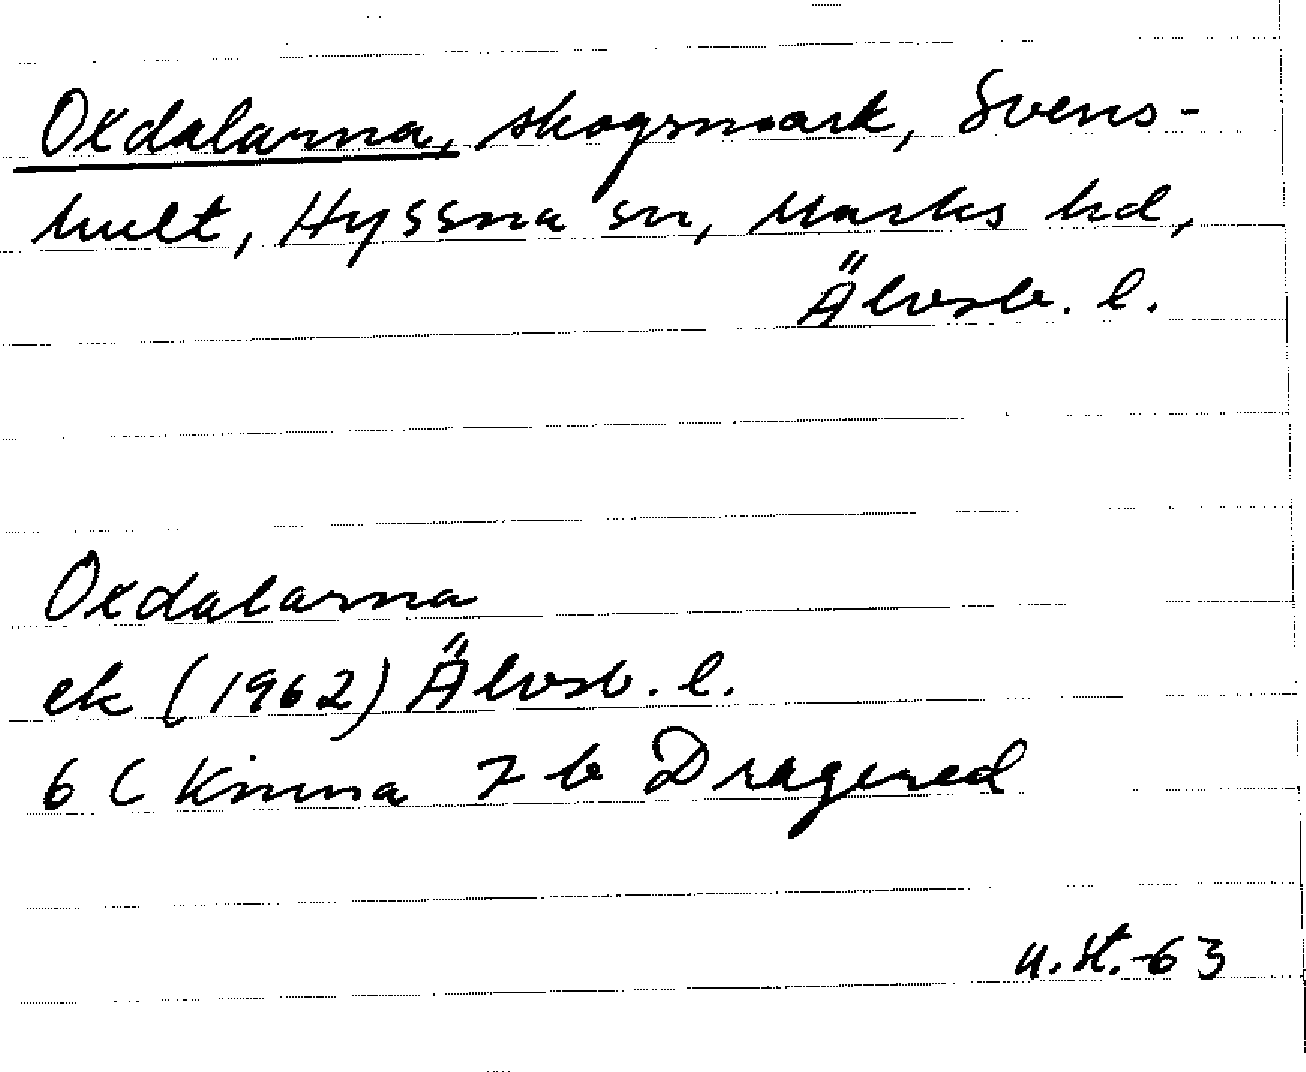 Oxdalarna, skogsmark, Svens-
hult, Hyssna sn, Marks hd,
Älvsb. l.
Oxdalarna
ek (1962) Älvsb. l.
6 C Kinna 7 b Dragered
u. st. -63